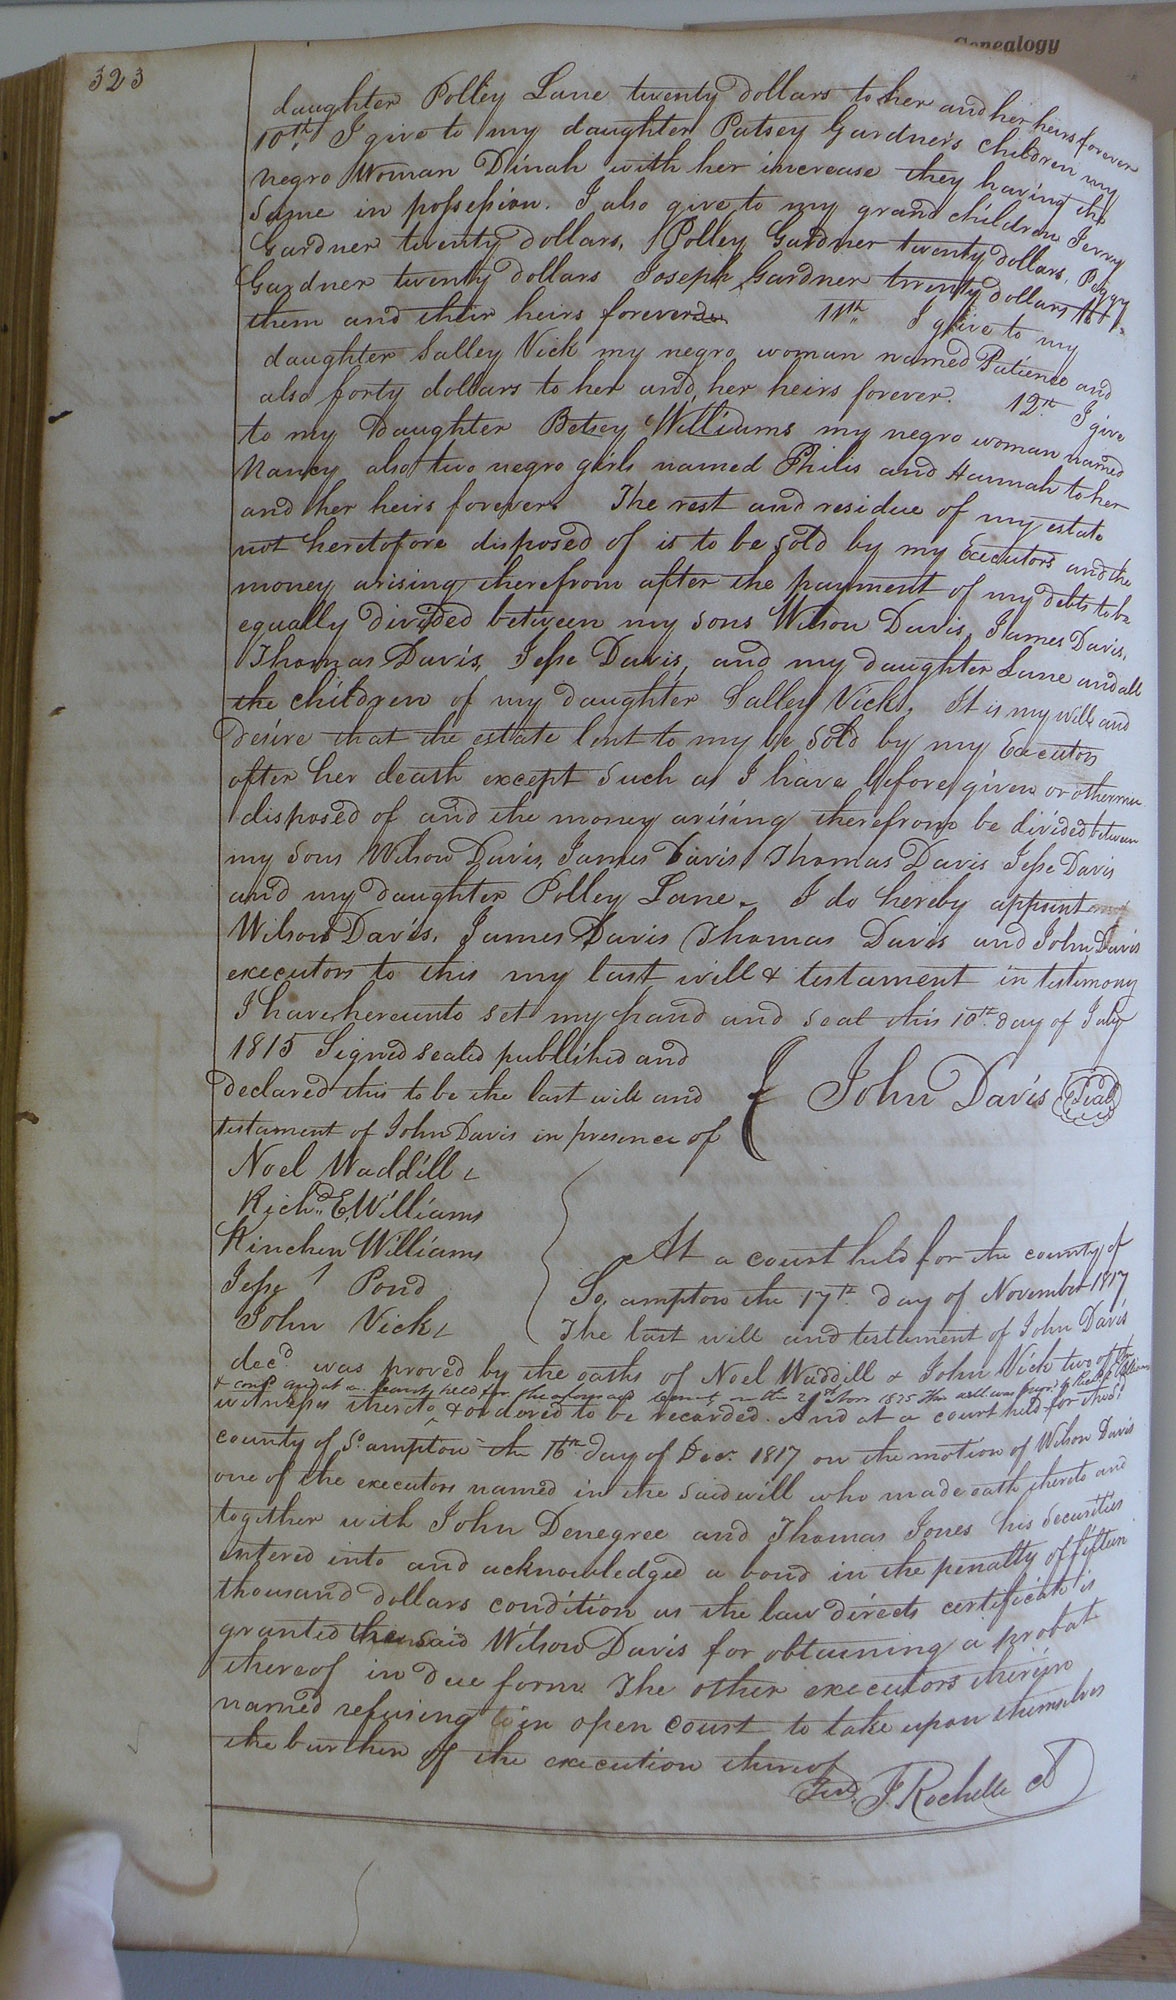 Genealogy
323
daughter Polley Lane twenty dollars to her and her heirs forever
10th. I give to my daughter Patsey Gardner's children my
negro Woman Dinah with her increase they having the
same in possession. I also give to my grand children Jerry
Gardner twenty dollars, Polley Gardner twenty dollars, Peggy
Gardner twenty dollars Joseph Gardner twenty dollars to
them and their heirs forever 11th I give to my
daughter Salley Vick my negro woman named Patience and
also forty dollars to her and her heirs forever. 12th I give
to my Daughter Betsey Williams my negro woman named
Nancy also two negro girls named Philis and Hannah to her
and her heirs forever. The rest and residue of my estate
not heretofore disposed of is to be sold by my Executors and the
money arising therefrom after the payment of my debts to be
equally divided between my sons Wilson Davis, James Davis,
Thomas Davis, Jesse Davis, and my daughter Lane and all
the children of my daughter Salley Vick. It is my will and
desire that the estate lent to my be sold by my Executors
after her death except such as I have before given or otherwise
disposed of and the money arising therefrom be divided between
my sons Wilson Davis, James Davis, Thomas Davis Jesse Davis
and my daughter Polley Lane. I do hereby appoint
Wilson Davis, James Davis Thomas Davis and John Davis
executors to this my last will & testament in testimony
I have hereunto set my hand and seal this 10th day of July
1815 Signed sealed published and
declared this to be the last will and
testament of John Davis in presence of
John Davis Seal
Noel Waddill
Richd. E. Williams
Kinchen Williams
Jesse Pond
John Vick
At a court held for the county of
So. ampton the 17th day of November 1817
The last will and testament of John Davis
decd. was proved by the oaths of Noel Waddill & John Vick two of the
& and at a court held for the county on the 21st Novr 1825 this will was by Richd E Williams
witnesses thereto & ordered to be recorded. And at a court held for the sd.
county of So. ampton the 16th day of Decr. 1817 on the motion of Wilson Davis
one of the executors named in the said will who made oath thereto and
together with John Denegree and Thomas Jones his securities
entered into and acknowledged a bond in the penalty of fifteen
thousand dollars condition as the law directs certificate is
granted the said Wilson Davis for obtaining a probat
thereof in due form The other executors therein
named refusing in open court to take upon themselves
the burthen of the execution thereof
J. Rochelle